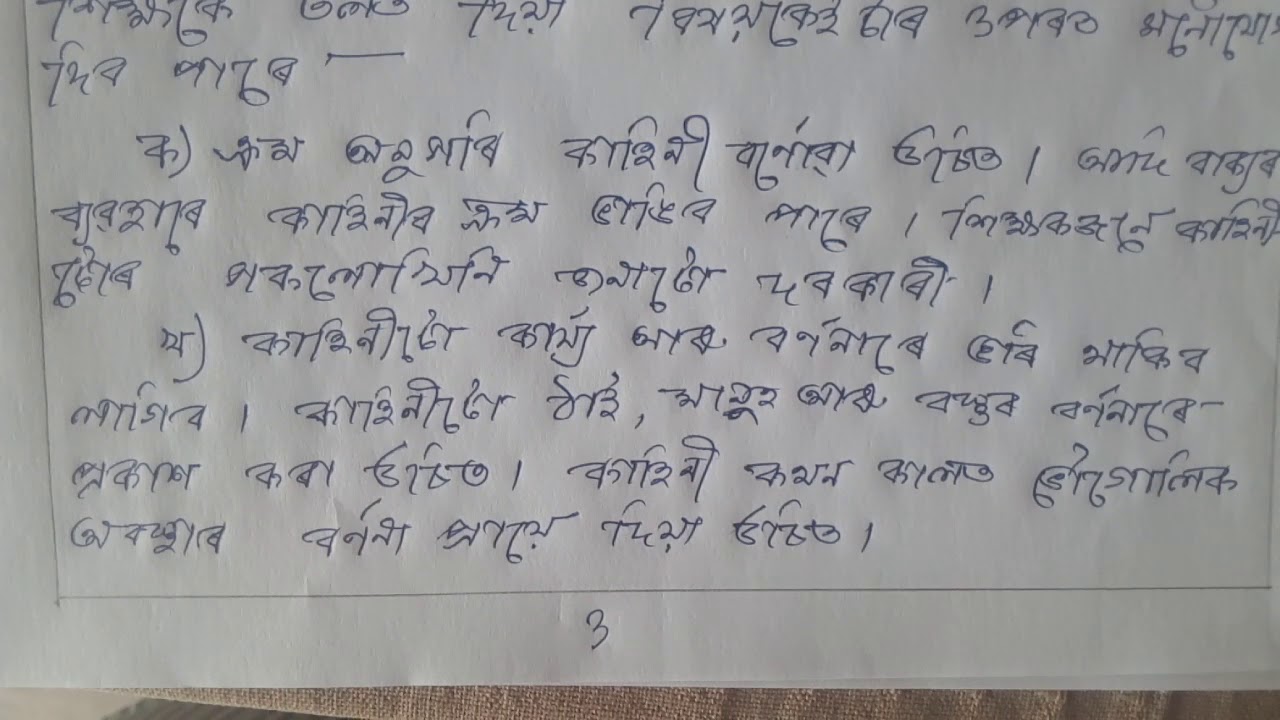 শিক্ষকে তলত দিয়া বিষয়কেইটাৰ ওপৰত মনোযোগ
দিব পাৰে —
ক) ক্ৰম অনুসৰি কাহিনী বৰ্ণোৱা উচিত। আদি বাক্যৰ
ব্যৱহাৰে কাহিনীৰ ক্ৰম ভাঙিব পাৰে। শিক্ষকজনে কাহিনী
টোৰ সকলোখিনি জনাটো দৰকাৰী।
খ) কাহিনীটো কাৰ্য্য আৰু বৰ্ণনাৰে ভৰি থাকিব
লাগিব। কাহিনীটো ঠাই, মানুহ আৰু বস্তুৰ বৰ্ণনাৰে
প্ৰকাশ কৰা উচিত। কাহিনী কথন কালত ভৌগোলিক
অৱস্থাৰ বৰ্ণনা প্ৰায়ে দিয়া উচিত।
3